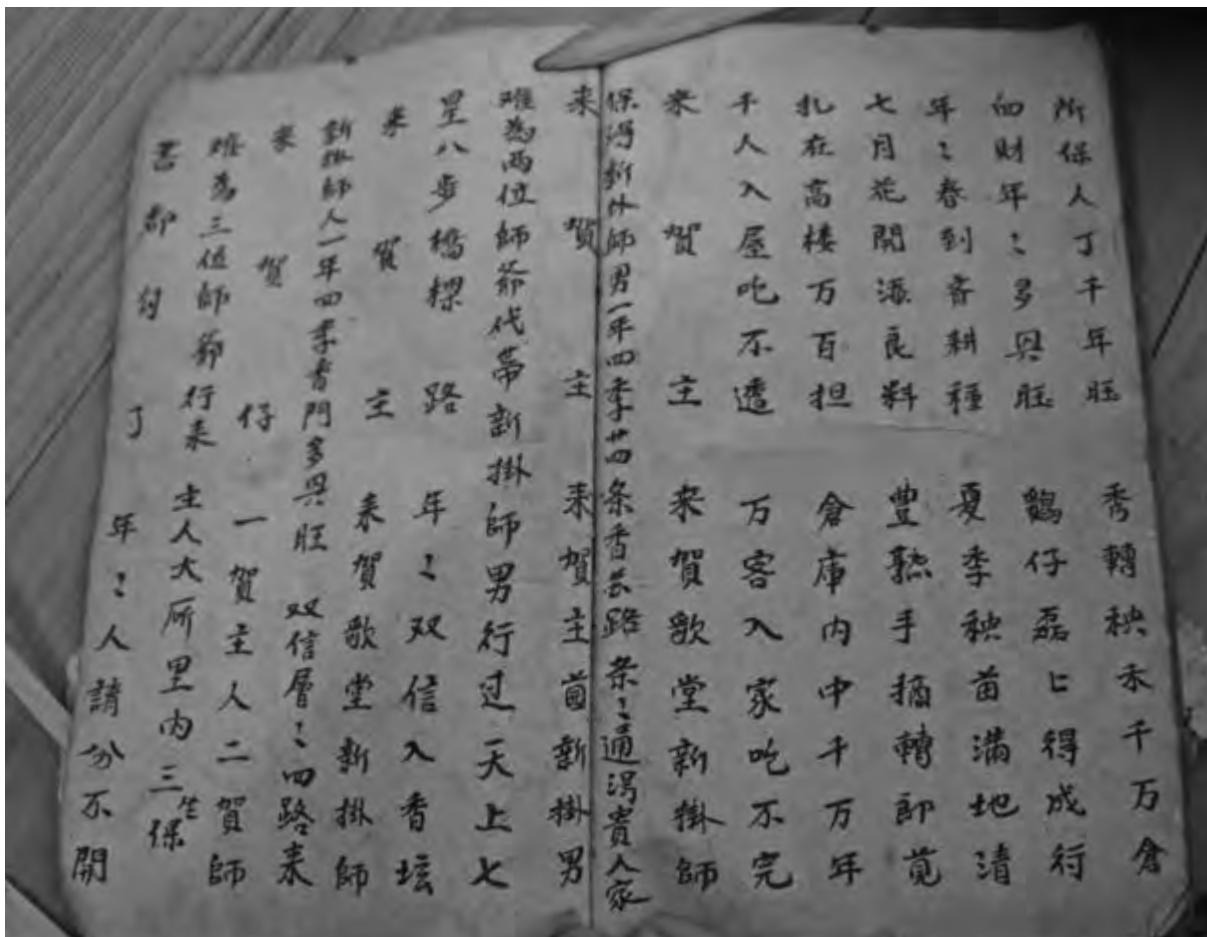 所保人丁千年旺 秀轉秧禾千万倉
四財年〻多興旺 鶏仔磊〻得成行
年〻春到斉耕種 夏季秧苗满地清
七月花開漲良料 豊熟手插轉郎覓
扎在高楼万百担 倉庫内中千万年
千人入屋吃不透 万客入家吃不完
来賀主 来賀歌堂新掛師
保得新外師男一年四季廿四条香芸路 条〻通得貴人家
来賀主 来賀主萻新掛男
难為両位師爺代帶新掛師男行过天上七
星八步橋樑路 年〻双信入香坛
来賀主 来賀歌堂新掛師
新掛師人一年四季香門多興旺 双信層〻四路来
来賀仔 一賀主人二賀師
难為三位師爺行来 主人大所里内三生保
晋都匀了 年〻人請分不開